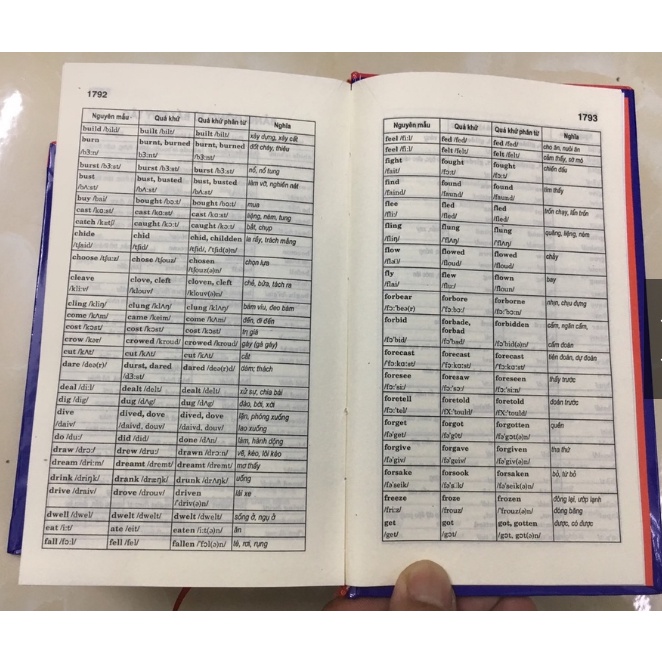 1792
Nguyên mẫu Quá khứ Quá khứ phân từ Nghĩa
build /bild/ built /bilt/ built /bilt/ xây dựng, xây cất
burn burnt, burned burnt, burned đốt cháy, thiêu
/bɜ:n/ /bɜ:nt/ /bɜ:nt/
burst /bɜ:st/ burst /bɜ:st/ burst /bɜ:st/ nổ, nổ tung
bust bust, busted bust, busted làm vỡ, nghiền nát
/bʌst/ /bʌ:st/ /bʌ:st/
buy /bai/ bought /bɔ:t/ bought /bɔ:t/ mua
cast /kɑ:st/ cast /kɑ:st/ cast /kɑ:st/ liệng, ném, tung
catch /kætʃ/ caught /kɔ:t/ caught /kɔ:t/ bắt, chụp
chide chid chid, childden la rầy, trách mắng
/tʃaid/ /tʃid/ /tʃid/, /'tʃid(ə)n/
choose /tʃu:z/ chose /tʃouz/ chosen chọn lựa
/tʃouz(ə)n/
cleave clove, cleft cloven, cleft chẻ, bửa, tách ra
/kli:v/ /klouv/ /klouv(ə)n/
cling /kliŋ/ clung /klʌŋ/ clung /klʌŋ/ bám víu, đeo bám
come /kʌm/ came /keim/ come /kʌm/ đến, đi đến
cost /kɒst/ cost /kɒst/ cost /kɒst/ trị giá
crow /krər/ crowed /kroud/ crowed /kroud/ gáy (gà gáy)
cut /kʌt/ cut /kʌt/ cut /kʌt/ cắt
dare /deə(r)/ durst, dared dared /deə(r)d/ dám; thách
/dɜ:st/
deal /di:l/ dealt /delt/ dealt /delt/ xử sự, chia bài
dig /dig/ dug /dʌg/ dug /dʌg/ đào, bới, xới
dive dived, dove dived, dove lặn, phóng xuống
/daiv/ /daivd, douv/ /daivd, douv/ lao xuống
do /du:/ did /did/ done /dʌn/ làm, hành động
draw /drɔ:/ drew /dru:/ drawn /drɔ:n/ vẽ, kéo, lôi kéo
dream /dri:m/ dreamt /dremt/ dreamt /dremt/ mơ thấy
drink /driŋk/ drank /dræŋk/ drunk /drʌŋk/ uống
drive /draiv/ drove /drouv/ driven lái xe
/'driv(ə)n/
dwell /dwel/ dwelt /dwelt/ dwelt /dwelt/ sống ở, ngụ ở
eat /i:t/ ate /eit/ eaten /i:t(ə)n/ ăn
fall /fɔ:l/ fell /fel/ fallen /'fɔl(ə)n/ té, rơi, rụng
1793
Nguyên mẫu Quá khứ Quá khứ phân từ Nghĩa
feel /fi:l/ fed /fed/ fed /fed/ cho ăn, nuôi ăn
feel /fi:l/ felt /felt/ felt /felt/ cảm thấy, sờ mó
fight fought fought chiến đấu
/fait/ /fɔ:t/ /fɔ:t/
find found found tìm thấy
/faind/ /faund/ /faund/
flee fled fled trốn chạy, lẩn trốn
/fli:/ /fled/ /fled/
fling flung flung quăng, liệng, ném
/fliŋ/ /flʌŋ/ /flʌŋ/
flow flowed flowed chảy
/floud/ /floud/
fly flew flown bay
/flai/ /flu:/ /floun/
forbear forbore forborne nhịn, chịu đựng
/fɔ:'beə(r)/ /fɔ:'bɔ:/ /fɔ:'bɔ:n/
forbid forbade, forbidden cấm, ngăn cấm,
forbad
/fə'bid/ /fə'bæd/ /fə'bid(ə)n/ cấm đoán
forecast forecast forecast tiên đoán, dự đoán
/fɔ:kɑ:st/ /fɔ:kɑ:st/ /fɔ:kɑ:st/
foresee foresaw foreseen thấy trước
/fɔ:'si:/ /fɔ:'sɔ:/ /fɔ:'si:n/
foretell foretold foretold đoán trước
/fɔ:'tel/ /fX:'tould/ /fX:'tould/
forget forgot forgotten quên
/fə'get/ /fə'gɒt/ /fə'gɒt(ə)n/
forgive forgave forgiven tha thứ
/fə'giv/ /fə'geiv/ /fə'giv(ə)n/
forsake forsook forsaken bỏ, từ bỏ
/fə'seik/ /fə'seik(ə)n/
freeze froze frozen đông lại, ướp lạnh
/fri:z/ /frouz/ /'frouz(ə)n/ đóng băng
get got got, gotten được, có được
/get/ /gɒt/ /gɒt, gɒt(ə)n/